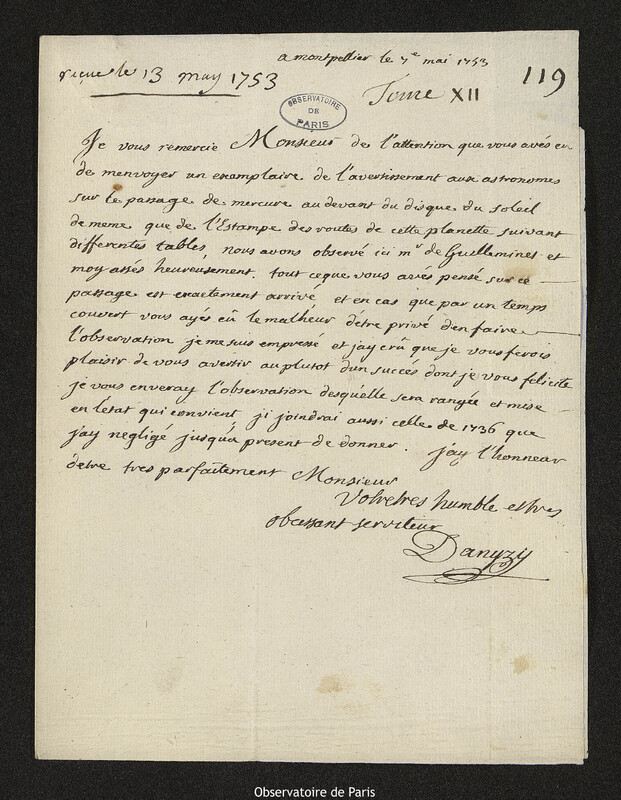 a montpellier le 7e mai 1753
reçue le 13 may 1753
119
Tome XII
OBSERVATOIRE
DE
PARIS
Je vous remercie Monsieur de l'attention que vous avés eu
de menvoyer un exemplaire de l'avertissement aux astronomes
sur le passage de mercure audevant du disque du soleil
de meme que de l'Estampe des routes de cette planette suivant
differentes tables, nous avons observé ici mr de Guilleminet et
moy assés heureusement, tout ceque vous avés pensé sur ce
passage est exactement arrivé, et en cas que par un temps
couvert vous ayés eû le malhéur dêtre privé den faire
l'observation je me suis empressé et jay crû que je vous ferois
plaisir de vous avertir au plutot dun succés dont je vous felicite
je vous enveray l'observation desquélle sera rangée et mise
en létat qui convient, ji joindrai aussi celle de 1736 que
jay negligé jusqu'à present de donner. jay l'honneur
dêtre tres parfaitement Monsieur
Votre tres humble et tres
obeissant serviteur
Danyzy
Observatoire de Paris